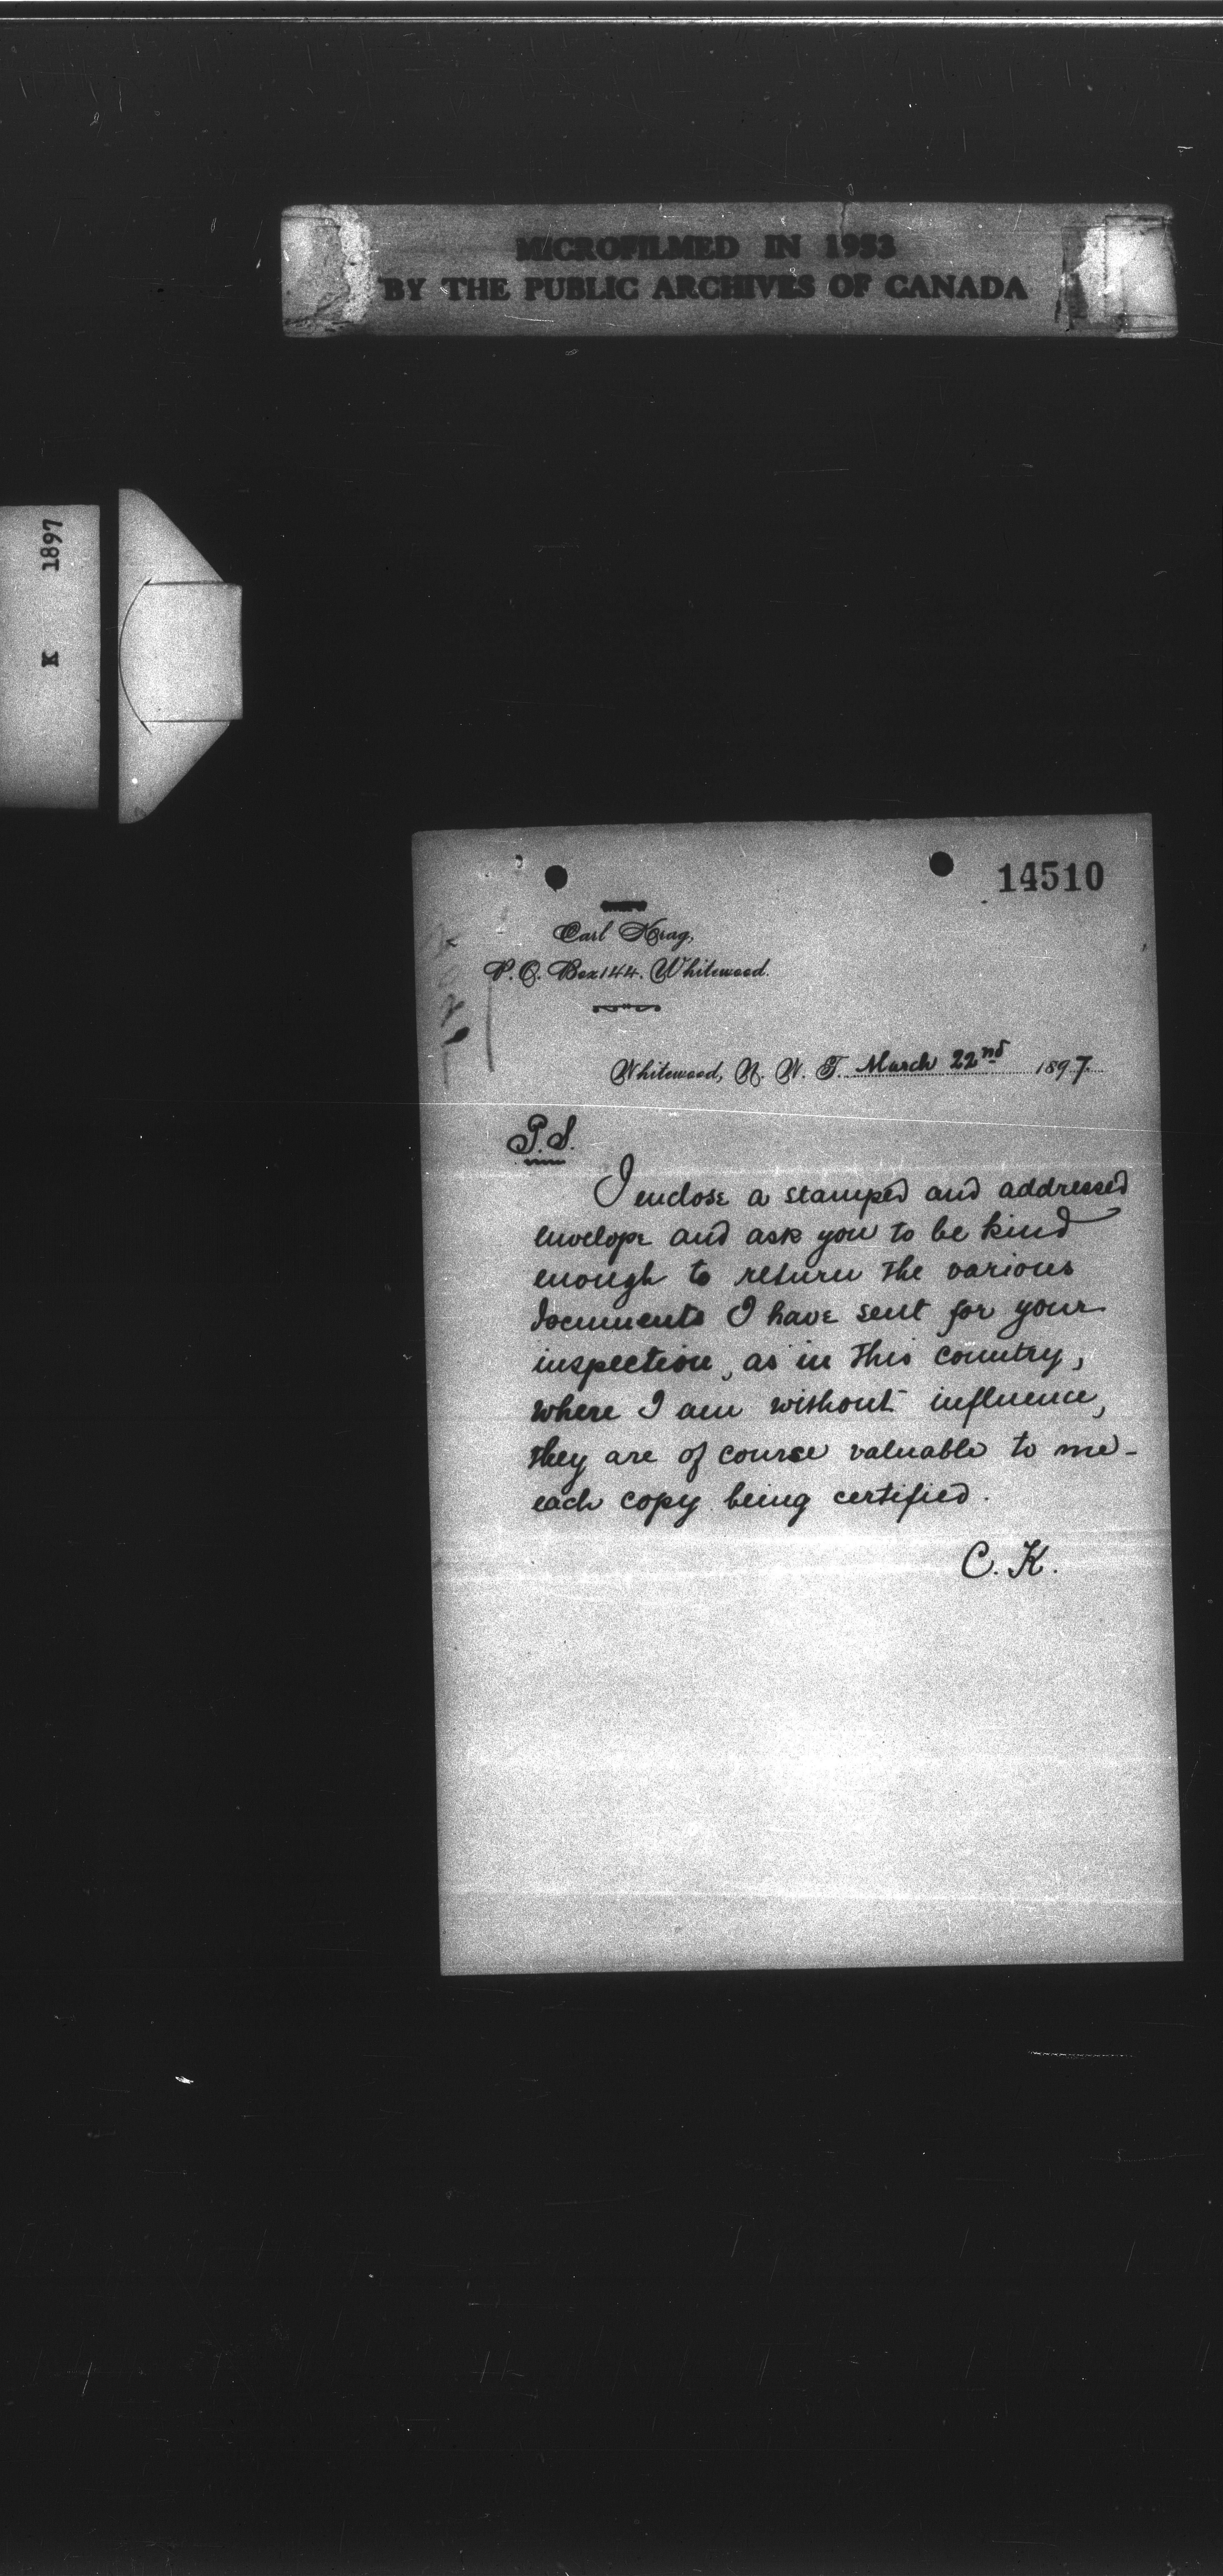 MICROFILMED IN 1953
BY THE PUBLIC ARCHIVES OF CANADA
K 1897
14510
Carl Krag,
P.O. Box 144. Whitewood.
Whitewood, N. W. T. March 22nd 1897.
P.S.
I enclose a stamped and addressed
envelope and ask you to be kind
enough to return the various
documents I have sent for your
inspection, as in this country,
where I am without influence,
they are of course valuable to me -
each copy being certified.
C. K.